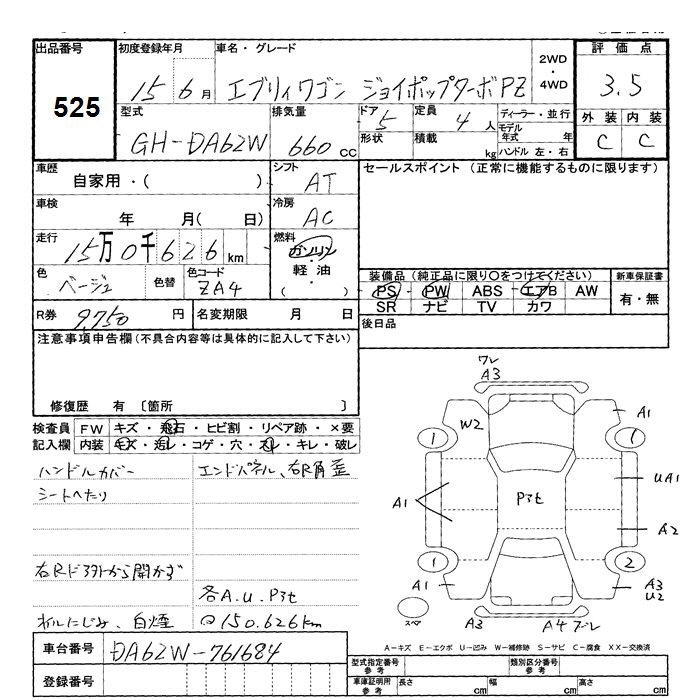 出品番号 初度登録年月 車名・グレード 2WD・4WD 評価点
525 15年6月 エブリィワゴン ジョイポップターボPZ 3.5
型式 排気量 ドア 定員 ディーラー・並行 外装 内装
GH-DA62W 660cc 5 4人 モデル年式 年 C C
形状 積載 kg ハンドル 左・右
車歴 シフト セールスポイント (正常に機能するものに限ります)
自家用・( ) AT
車検 冷房
年 月( 日) AC
走行 燃料
15万0千626km ガソリン・軽油・( )
色 色替 色コード 装備品 (純正品に限り○をつけてください) 新車保証書
ベージュ ZA4 PS PW ABS エアB AW 有・無
SR ナビ TV カワ
R券 9,750円 名変期限 月 日 後日品
注意事項申告欄(不具合内容等は具体的に記入して下さい)
修復歴 有 〔箇所 〕
検査員 FW キズ・飛石・ヒビ割・リペア跡・×要
記入欄 内装 キズ・汚レ・コゲ・穴・スレ・キレ・破レ
ハンドルカバー エンドパネル、右R角歪
シートへたり
右Rドア外から開かず
各A.U.P3t
オイルにじみ、白煙 @150.626km
ワレ
A3
A1
W2
1 1
UA1
P3t
A1
A2
1 2
A1
A3
U2
スペア
A3 A4 ブレ
A-キズ E-エクボ U-凹み W-補修跡 S-サビ C-腐食 XX-交換済
車台番号 DA62W-761684
型式指定番号 参考 類別区分番号 参考
登録番号 車庫証明用 参考 長さ cm 幅 cm 高さ cm